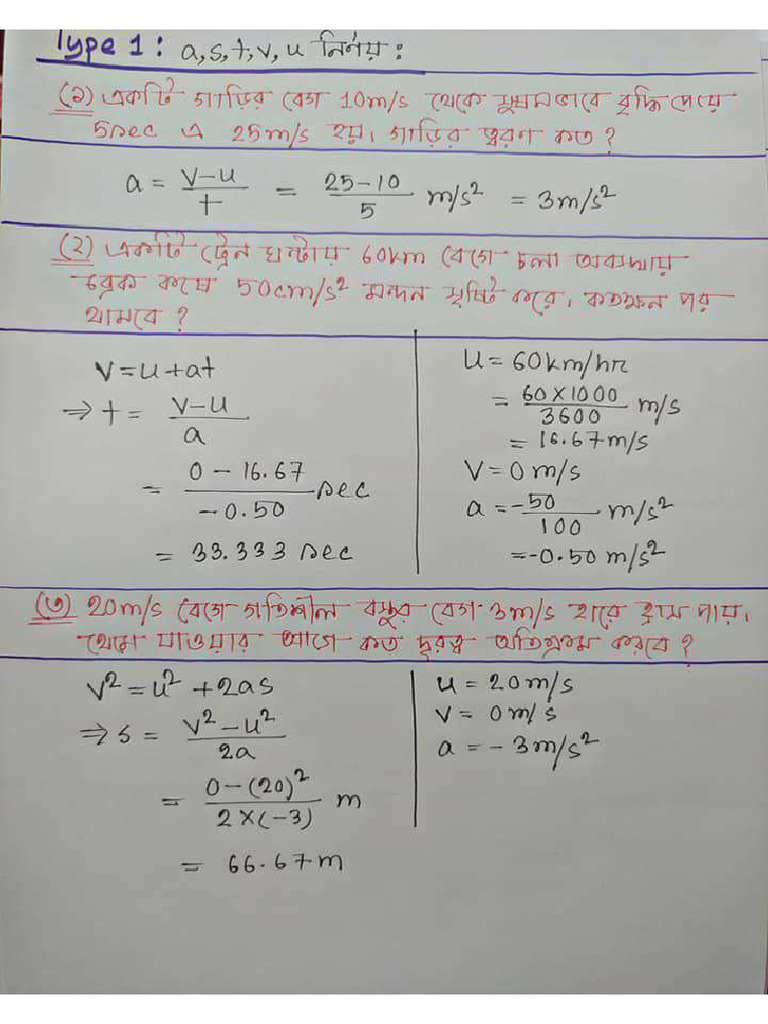 Type 1: a, s, t, v, u নির্ণয়ঃ
(১) একটি গাড়ির বেগ 10m/s থেকে সুষমভাবে বৃদ্ধি পেয়ে
5sec এ 25m/s হয়। গাড়ির ত্বরণ কত?
a = (v-u)/t = (25-10)/5 m/s² = 3m/s²
(২) একটি ট্রেন ঘন্টায় 60km বেগে চলা অবস্থায়
ব্রেক কষে 50cm/s² মন্দন সৃষ্টি করে। কতক্ষন পর
থামবে?
v = u + at
⇒ t = (v-u)/a
= (0 - 16.67)/(-0.50) sec
= 33.333 sec
u = 60km/hr
= (60×1000)/3600 m/s
= 16.67m/s
v = 0 m/s
a = -50/100 m/s²
= -0.50 m/s²
(৩) 20m/s বেগে গতিশীল বস্তুর বেগ 3m/s হারে হ্রাস পায়।
থেমে যাওয়ার আগে কত দূরত্ব অতিক্রম করবে?
v² = u² + 2as
⇒ s = (v² - u²)/2a
= (0 - (20)²)/(2×(-3)) m
= 66.67m
u = 20m/s
v = 0m/s
a = - 3m/s²